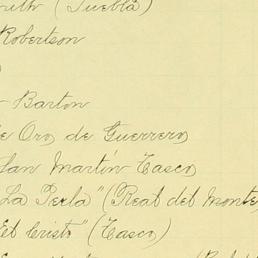 (Puebla)
Robertson
- Barton
de Oro, de Guerrero
San Martín - Tasco
"La Perla" (Real del Monte,
"El Cristo" (Tasco)